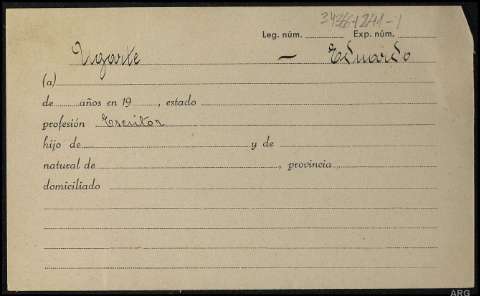 Leg. núm. Exp. núm.
Ugarte — Eduardo
(a)
de años en 19 , estado
profesión Escritor
hijo de y de
natural de , provincia
domiciliado
ARG